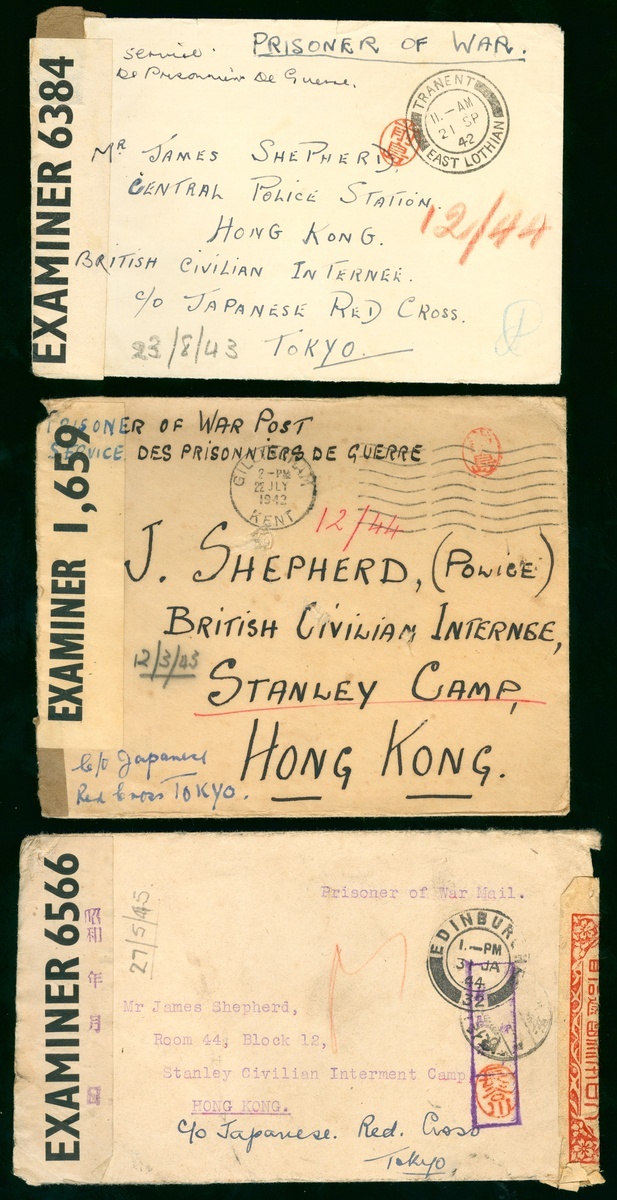 EXAMINER 6384
PRISONER OF WAR.
Service.
De Prisonnier De Guerre.
TRANENT
11.-AM
21 SP
42
EAST LOTHIAN
MR JAMES SHEPHERD,
CENTRAL POLICE STATION.
HONG KONG.
12/44
BRITISH CIVILIAN INTERNEE.
C/O JAPANESE RED CROSS.
23/8/43
TOKYO.
EXAMINER 1,659
PRISONER OF WAR POST
SERVICE DES PRISONNIERS DE GUERRE
2-PM
22 JLY
1942
KENT
12/44
J. SHEPHERD, (POLICE)
BRITISH CIVILIAN INTERNEE,
12/3/43
STANLEY CAMP,
HONG KONG.
C/o Japanese
Red Cross TOKYO.
EXAMINER 6566
昭和 年 月 日
27/5/45
Prisoner of War Mail.
EDINBUR
1.-PM
JA
44
32
Mr James Shepherd,
Room 44, Block 12,
Stanley Civilian Interment Camp
HONG KONG.
C/o Japanese. Red. Cross
Tokyo,